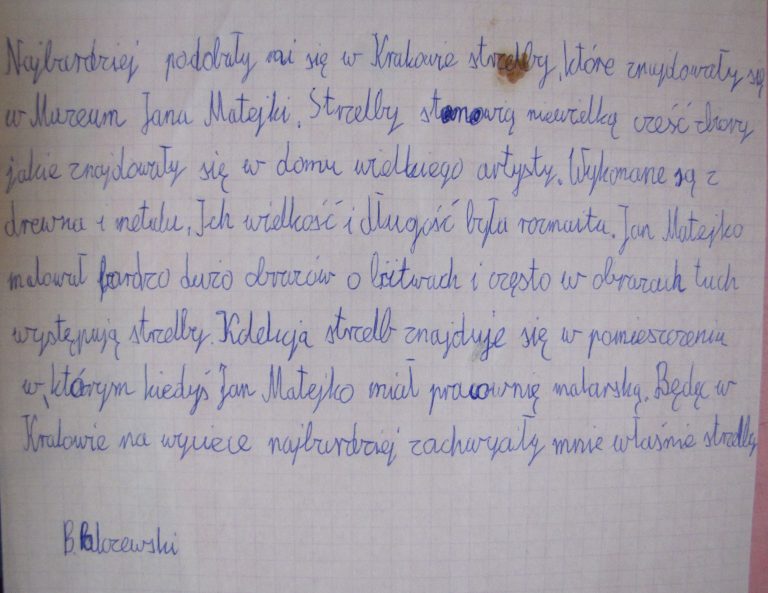 Najbardziej podobały mi się w Krakowie strzelby, które znajdowały się
w Muzeum Jana Matejki. Strzelby stanowią niewielką część zbroi
jakie znajdowały się w domu wielkiego artysty. Wykonane są z
drewna i metalu. Ich wielkość i długość była rozmaita. Jan Matejko
malował bardzo dużo obrazów o bitwach i często w obrazach tuch
występują strzelby. Kolekcja strzelb znajduje się w pomieszczeniu
w, którym kiedyś Jan Matejko miał pracownię malarską. Będąc w
Krakowie na wyciece najbardziej zachwycały mnie właśnie strzelby
B.